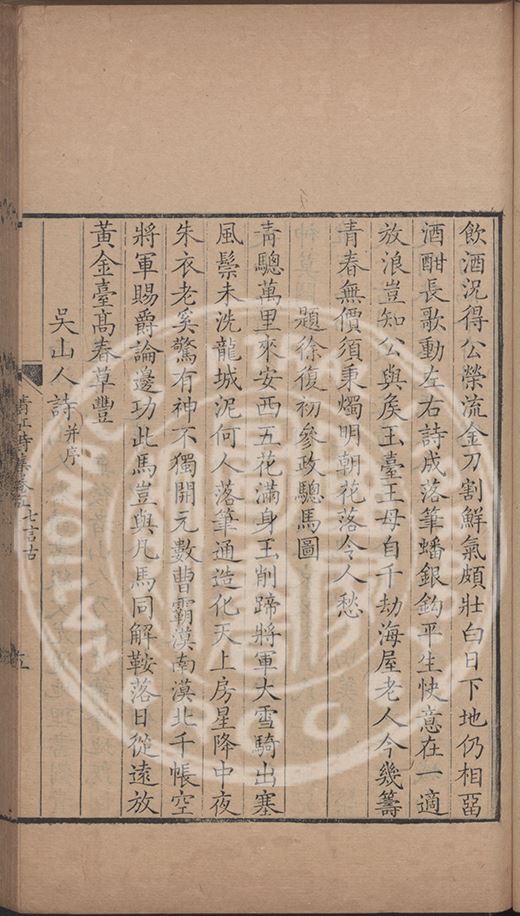 飲酒況得公榮流金刀割鮮氣頗壯白日下地仍相畱
酒酣長歌動左右詩成落筆蟠銀鈎平生快意在一適
放浪豈知公與矦王臺王母自千劫海屋老人今幾籌
青春無價須秉燭明朝花落令人愁
題徐復初參政驄馬圖
青驄萬里來安西五花滿身玉削蹄將軍大雪騎出塞
風鬃未洗龍城泥何人落筆通造化天上房星降中夜
朱衣老奚驚有神不獨開元數曹霸漠南漠北千帳空
將軍賜爵論邊功此馬豈與凡馬同解鞍落日從遠放
黃金臺高春草豐
吳山人詩并序
七言古